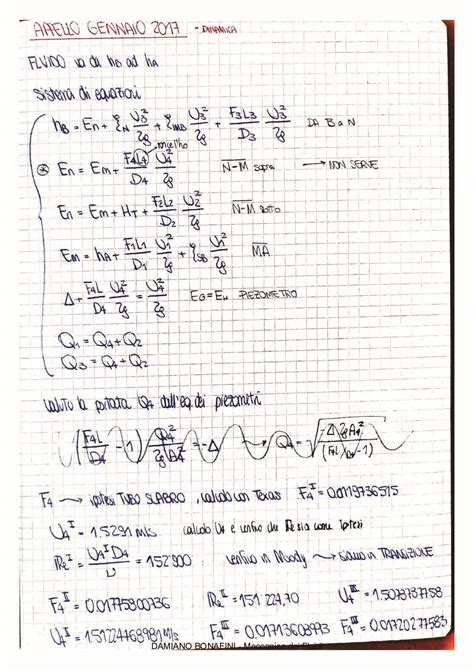 APPELLO GENNAIO 2017 - DINAMICA
FLUIDO va da hB ad hA
sistema di equazioni
hB = En + ξN U3²/2g + ξMB U3²/2g + F3L3/D3 U3²/2g DA B a N
⊛ En = Em + F4L4/D4 U4²/2g N-M sopra → NON SERVE
En = Em + HT + F2L2/D2 U2²/2g N-M sotto
Em = hA + F1L1/D1 U1²/2g + ξSB U1²/2g MA
Δ + F4L/D4 U4²/2g = U4²/2g EG = EH PIEZOMETRO
Q1 = Q4 + Q2
Q3 = Q4 + Q2
valuto la portata Q4 dall'eq dei piezometri
(F4L/D4 - 1) Q4²/2gA4² = -Δ → Q4 = √(-Δ 2gA4²/((F4L/D4)-1))
F4 → ipotesi TUBO SCABRO, calcolo con Texas F4^I = 0.0119736515
U4^I = 1.5291 m/s calcolo U4 e verifico che Re sia come ipotesi
Re^I = U4^I D4/ν = 152'900 verifico in Moody → siamo in TRANSIZIONE
F4^II = 0.01775800736 Re^II = 151 224,70 U4^III = 1.5078737758
U4^II = 1.5122446898 m/s F4^III = 0.01713608973 F4^IV = 0.01720277583
DAMIANO BONAFINI - Meccanica dei Fluidi